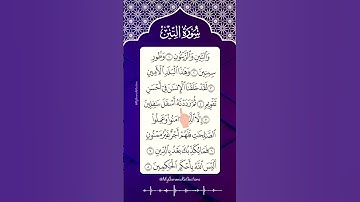 سُورَةُ التِّينِ
وَالتِّينِ وَالزَّيْتُونِ ١ وَطُورِ
سِينِينَ ٢ وَهَٰذَا الْبَلَدِ الْأَمِينِ
٣ لَقَدْ خَلَقْنَا الْإِنسَانَ فِي أَحْسَنِ
تَقْوِيمٍ ٤ ثُمَّ رَدَدْنَاهُ أَسْفَلَ سَافِلِينَ
٥ إِلَّا الَّذِينَ آمَنُوا وَعَمِلُوا
الصَّالِحَاتِ فَلَهُمْ أَجْرٌ غَيْرُ مَمْنُونٍ
٦ فَمَا يُكَذِّبُكَ بَعْدُ بِالدِّينِ ٧
أَلَيْسَ اللَّهُ بِأَحْكَمِ الْحَاكِمِينَ ٨